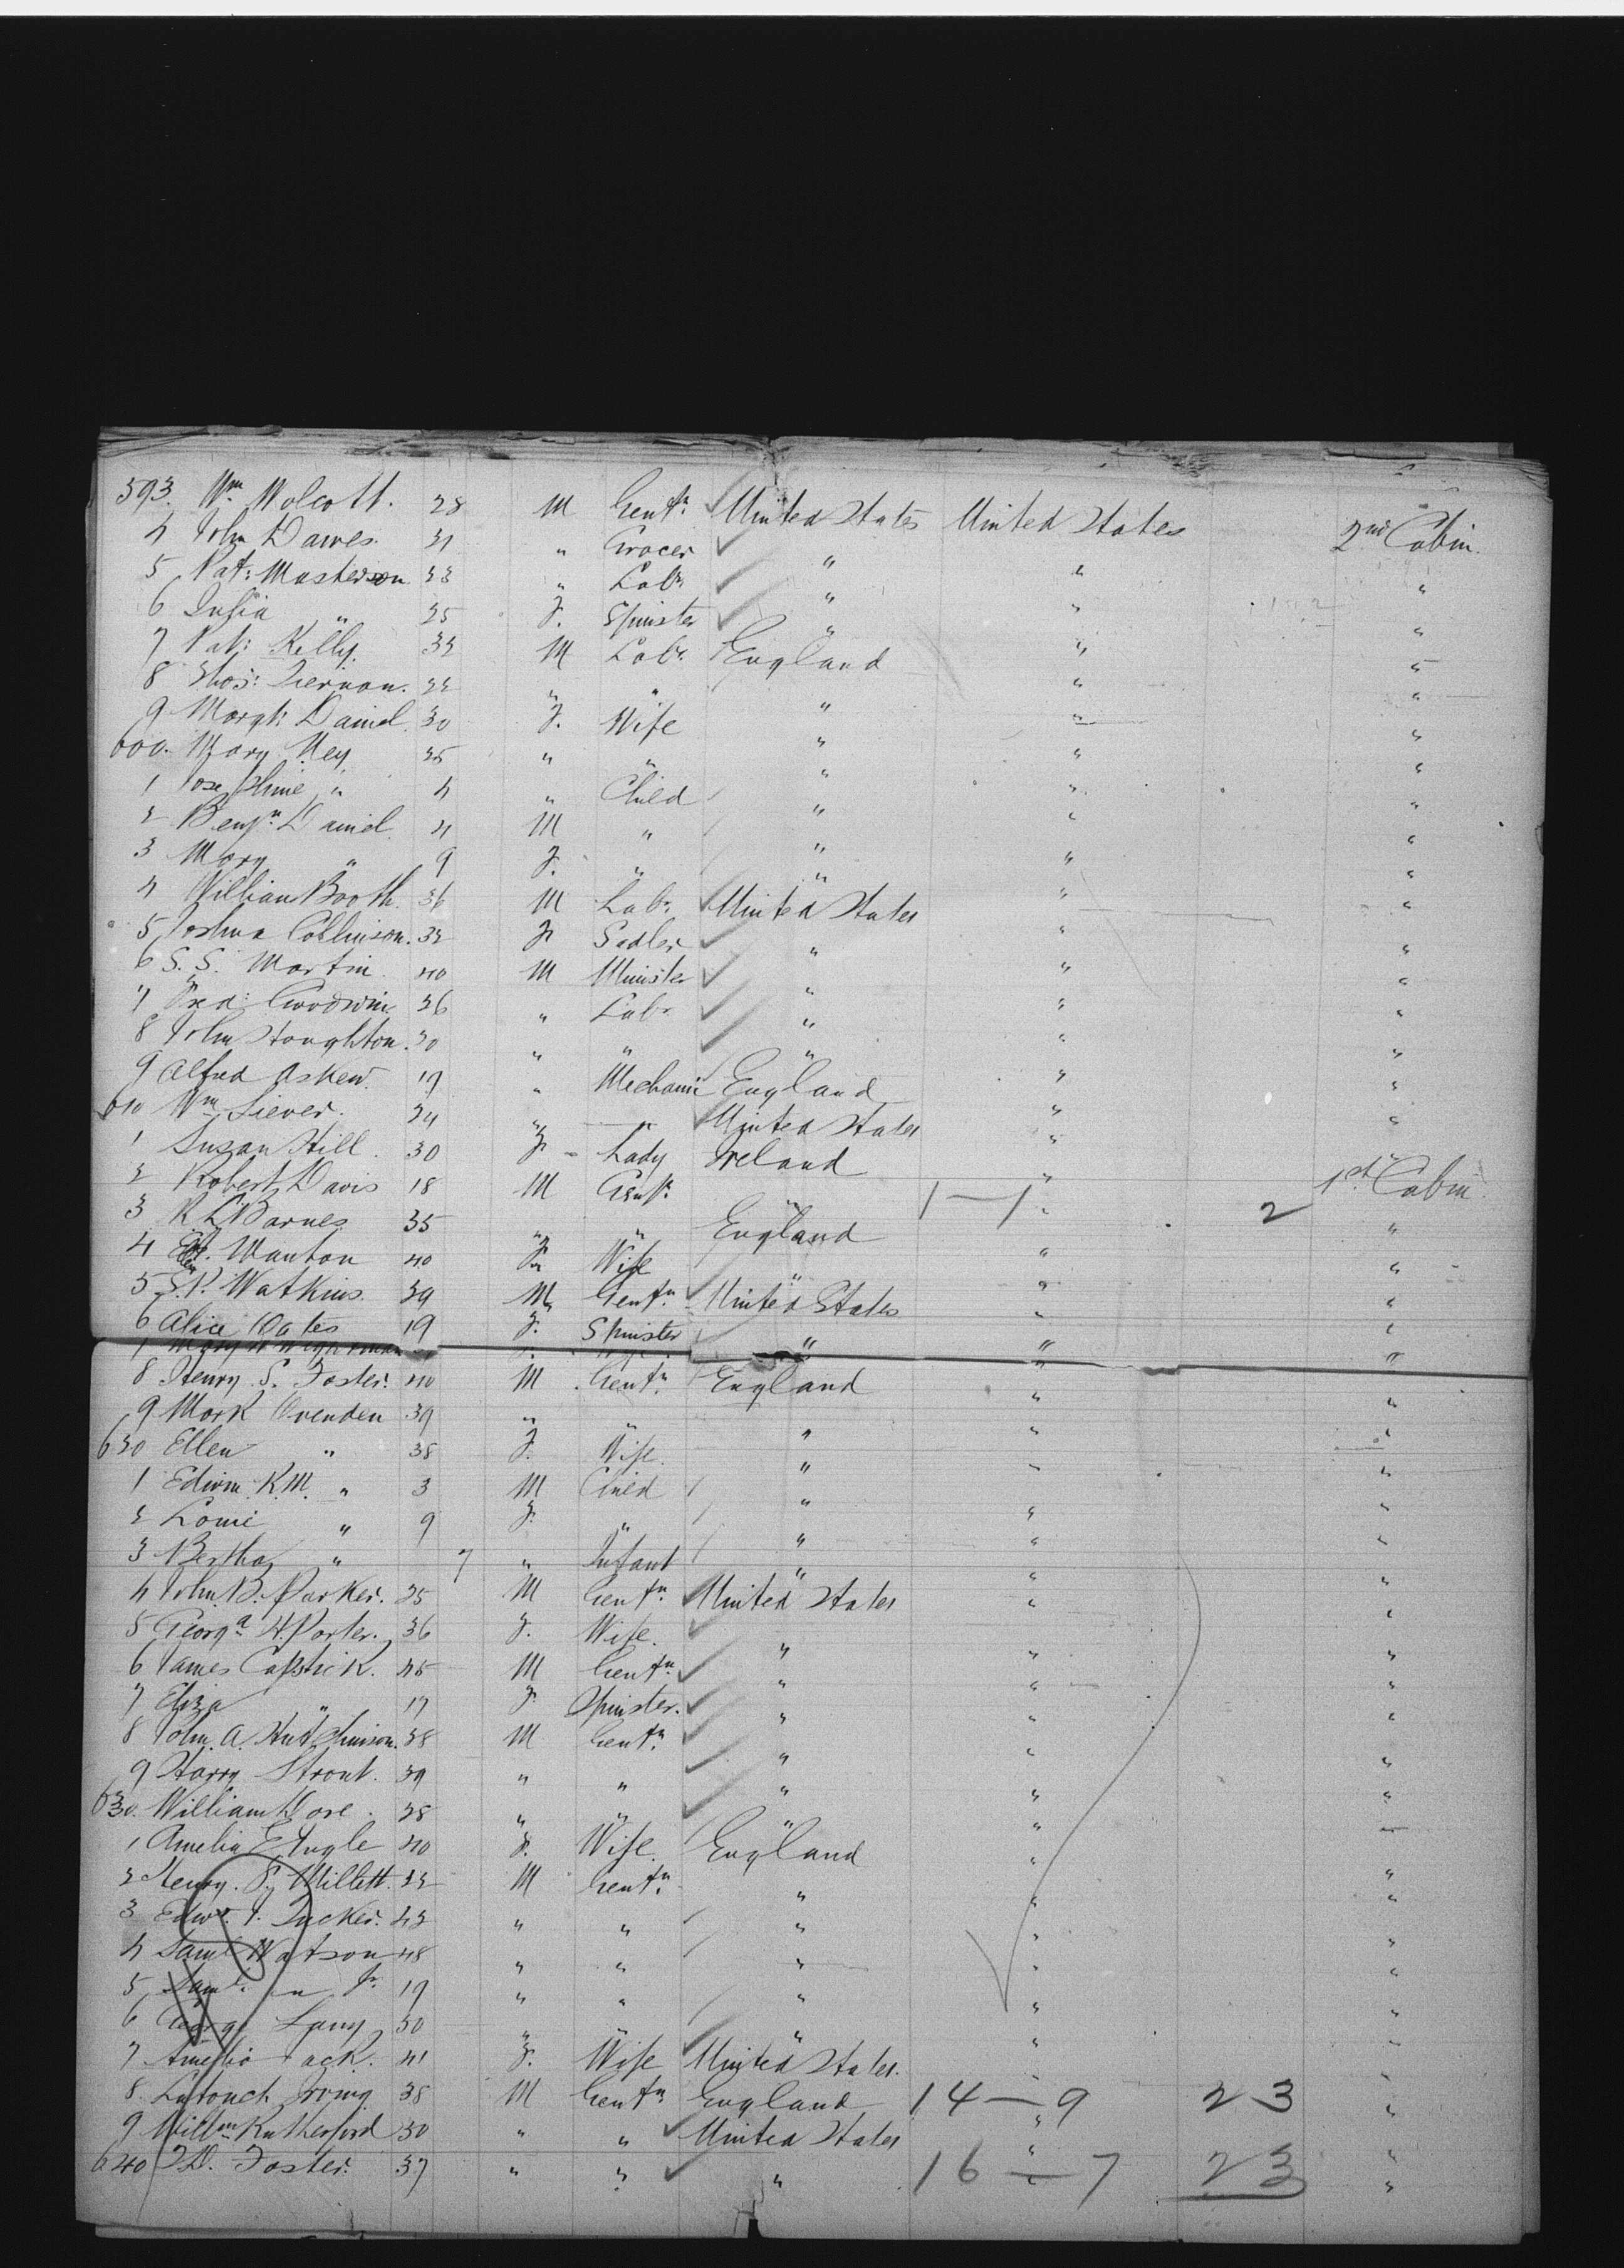 593. Wm Wolcott. 28 M Gentn. United States United States 2nd Cabin
4 John Dawes. 31 " Grocer " " "
5 Pat: Masterson 33 " Labr " " "
6 Julia " 25 F. Spinster " " "
7 Pat: Kelly. 33 M Labr. England " "
8 Thos: Tiernan. 22 " " " " "
9 Margt: Daniel. 30 F. Wife " " "
600. Mary Key 35 " " " " "
1 Josephine " 4 " Child " " "
2 Benjn Daniel. 4 M " " " "
3 Mary " 9 F. " " " "
4 William Booth. 36 M Labr. United States " "
5 Joshua Collinson. 32 F Sadler " " "
6 S. S. Martin 40 M Minister " " "
7 Fred: Goodwin 36 " Labr " " "
8 John Houghton. 30 " " " " "
9 Alfred Askew. 19 " Mechanic England " "
610 Wm Siever. 24 " " United States " "
1 Susan Hill. 30 F Lady Ireland " 1st Cabin
2 Robert Davis 18 M Gentn. " 1—1 " 2 "
3 R L Barnes 35 " " England " "
4 Wanton 40 F Wife " " "
5 S.P. Watkins. 39 M Gentn. United States " "
6 Alice Oates 19 F. Spinster " " "
8 Henry S. Foster. 40 M Gentn. England " "
9 Mark Ovenden 39 " " " " "
630 Ellen " 38 F. Wife. " " "
1 Edwin K.M. " 3 M Child " " "
2 Lomie " 9 F. " " " "
3 Bertha " 7 " Infant " " "
4 John B. Parker. 25 M Gentn. United States " "
5 Georga H. Porter. 36 F. Wife. " " "
6 James Capstick. 45 M Gentn. " " "
7 Eliza " 17 F. Spinster. " " "
8 John. A. Hutchinson. 38 M Gentn. " " "
9 Harry Strout. 39 " " " " "
630. William Dore. 28 " " " " "
1 Amelia E Ingle 40 F. Wife. England " "
2 Henry. S. Millett. 22 M Gentn. " " "
3 Edwd. J. Tucker. 43 " " " " "
4 Saml Watson 48 " " " " "
5 Saml. " Jr. 19 " " " " "
6 George 50 " " " " "
7 Amelia 41 F. Wife United States. " "
8. Latouch Irving 38 M Gentn England 14—9 " 23 "
9 Willm Rutherford 50 " " United States " "
640 F.D. Foster. 37 " " " 16—7 " 23 "